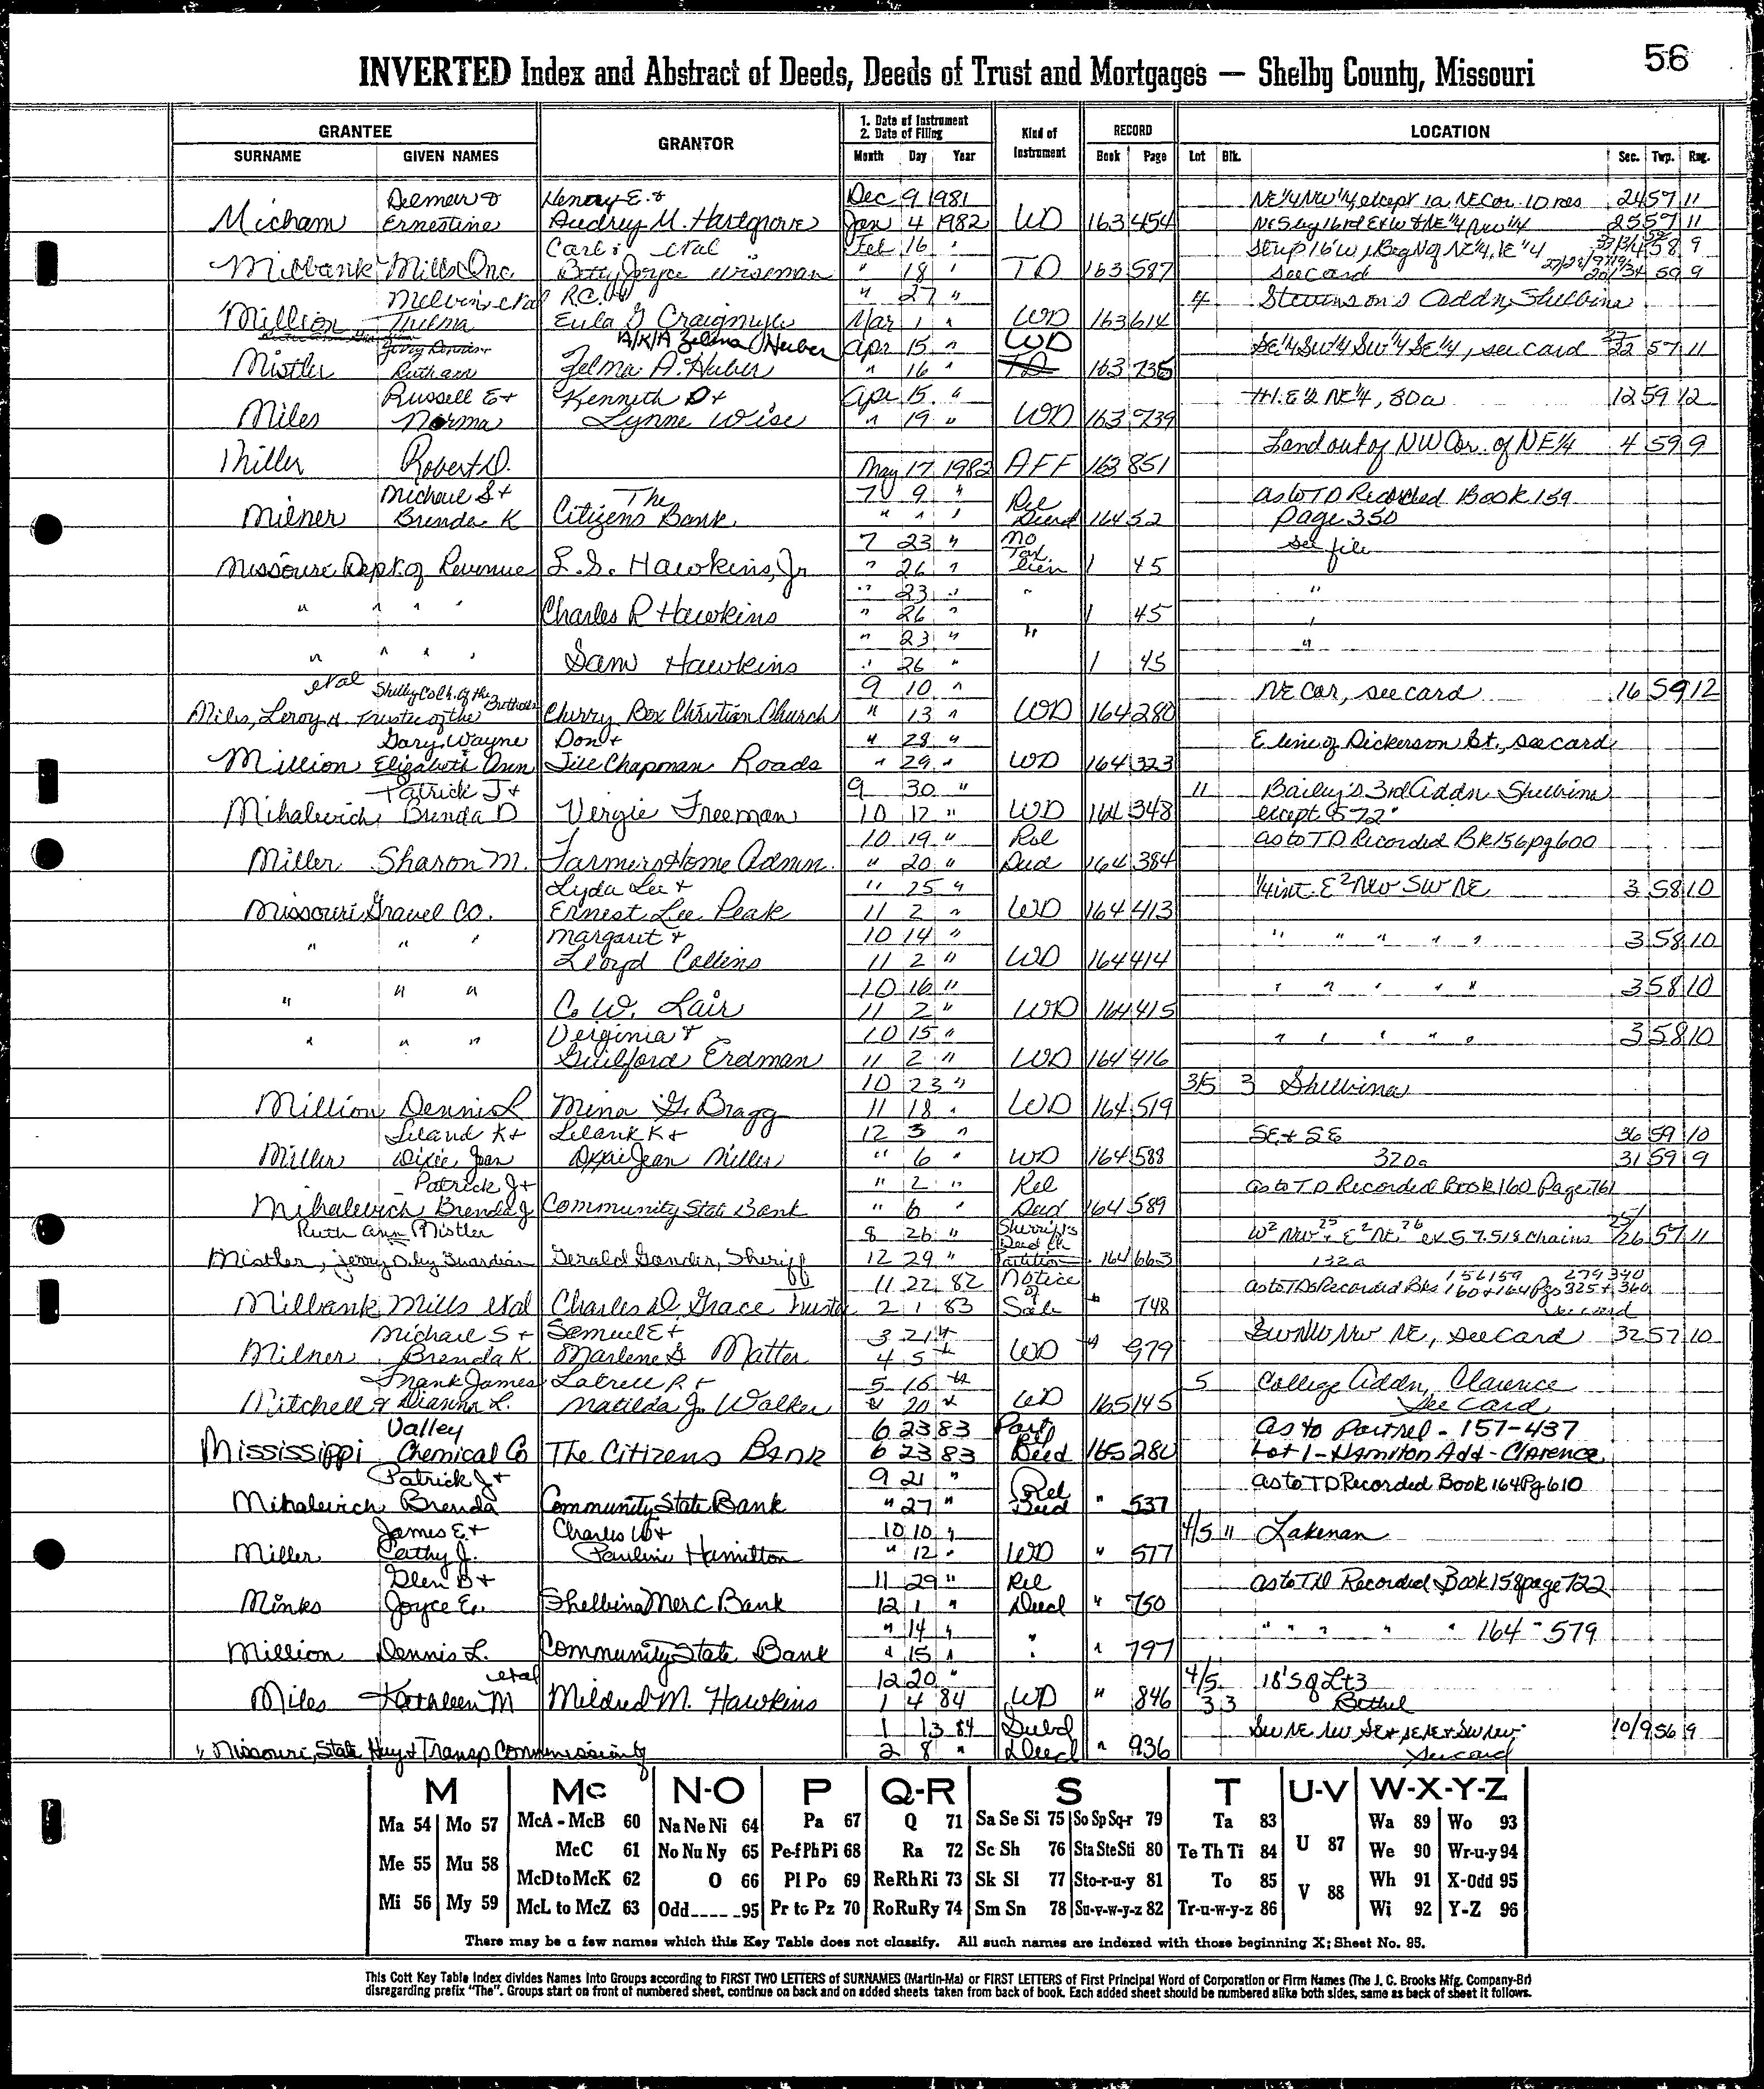 56
INVERTED Index and Abstract of Deeds, Deeds of Trust and Mortgages — Shelby County, Missouri
GRANTEE GRANTOR 1. Date of Instrument 2. Date of Filing Kind of Instrument RECORD LOCATION
SURNAME GIVEN NAMES Month Day Year Book Page Lot Blk. Sec. Twp. Rng.
Delmer & Henry E. & Dec 9 1981 NE 1/4 NW 1/4 except 1a NE Cor. 10 rds 24 57 11
Micham Ernestine Audrey M. Hartgrove Jan 4 1982 WD 163 454 25 57 11
Carl etal Feb 16 " Strip 16' w, Beg N of NE 1/4, 58 9
Milbank Mills Inc. Betty Joyce Wiseman " 18 " TD 163 587 see card 59 9
Melvin etal R.C. & " 27 " 4 Stevenson's Addn, Shelbina
Million Thelma Eula G Craigmyle Mar 1 " WD 163 614
A/K/A Zelma Huber Apr 15 " WD SE 1/4 SW 1/4 SW 1/4 SE 1/4, see card 22 57 11
Mistler Ruth ann Zelma A. Huber " 16 " TD 163 735
Russell E & Kenneth D & Apr 15 " H. E 1/2 NE 1/4, 80a 12 59 12
Miles Norma Lynne Wise " 19 " WD 163 739
Land out of NW Cor. of NE 1/4 4 59 9
Miller Robert D. May 17 1982 AFF 163 851
Michael S & The 7 9 " Rel as to TD Recorded Book 159
Milner Brenda K Citizens Bank " " " Deed 164 52 page 350
7 23 " Mo Tax see file
Missouri Dept. of Revenue L.S. Hawkins, Jr " 26 " Lien 1 45
" 23 " " "
" " " " Charles R Hawkins " 26 " 1 45
" 23 " " "
" " " " Sam Hawkins " 26 " 1 45
etal Shelby Co Ch. of the Brethren 9 10 " NE Cor, see card 16 59 12
Miles, Leroy H. Trustee of the Cherry Box Christian Church " 13 " WD 164 280
Gary Wayne Don & " 28 " E line of Dickerson St., see card
Million Elizabeth Ann Jill Chapman Roads " 29 " WD 164 323
Patrick J & 9 30 " 11 Bailey's 3rd Addn Shelbina
Mihalevich Brenda D Vergie Freeman 10 12 " WD 164 348 except S 72'
10 19 " Rel as to TD Recorded Bk 156 pg 600
Miller Sharon M. Farmers Home Admn. " 20 " Deed 164 384
Lyda Lee & " 25 " 1/4 int. E2 NW SW NE 3 58 10
Missouri Gravel Co. Ernest Lee Peak 11 2 " WD 164 413
Margaret & 10 14 " " " " " " 3 58 10
" " " Lloyd Collins 11 2 " WD 164 414
10 16 " " " " " " 3 58 10
" " " C. W. Lair 11 2 " WD 164 415
Virginia & 10 15 " " " " " " 3 58 10
" " " Guilford Erdman 11 2 " WD 164 416
10 23 " 3/5 3 Shelbina
Million Dennis L Mina G. Bragg 11 18 " WD 164 519
Leland K & Leland K & 12 3 " SE & SE 36 59 10
Miller Dixie Jean Dixie Jean Miller " 6 " WD 164 588 320a 31 59 9
Patrick J & " 2 " Rel as to TD Recorded Book 160 Page 761
Mihalevich Brenda J Community State Bank " 6 " Deed 164 589
Ruth Ann Mistler 8 26 " Sheriff's Deed in W2 NW 25 & E2 NE 26 ex S 7.518 chains 25/
Mistler, Jerry D. by Guardian Gerald Gander, Sheriff 12 29 " Partition 164 663 132a 26 57 11
11 22 82 Notice of as to TDs Recorded Bks 156 159 160 & 164 Pgs 279 340 325 & 360
Milbank Mills etal Charles D. Grace Trustee 2 1 83 Sale " 748 see card
Michael S & Samuel E & 3 21 " SW NW NW NE, see card 32 57 10
Milner Brenda K. Marlene G Matter 4 5 " WD " 979
Frank James Latrell R & 5 16 " 5 College Addn, Clarence
Mitchell & Dianna L. Matilda J. Walker " 20 " WD 165 145 see card
Valley 6 23 83 Part Rel As to Part rel - 157-437
Mississippi Chemical Co The Citizens Bank 6 23 83 Deed 165 280 Lot 1 - Hamilton Add - Clarence
Patrick J & 9 21 " Rel as to TD Recorded Book 164 Pg 610
Mihalevich Brenda Community State Bank " 27 " Deed " 537
James E & Charles W & 10 10 " 4/5 11 Lakenan
Miller Cathy J. Pauline Hamilton " 12 " WD " 577
Glen D & 11 29 " Rel as to TD Recorded Book 158 page 722
Minks Joyce E. Shelbina Merc Bank 12 1 " Deed " 750
" 14 " " " " " " " 164 " 579
Million Dennis L. Community State Bank " 15 " " " 797
etal 12 20 " 4/5 18' S 9 Lt 3
Miles Kathleen M Mildred M. Hawkins 1 4 84 WD " 846 3 3 Bethel
1 13 84 10/9 56 9
" Missouri, State Hwy & Transp. Commission 2 8 " Deed " 936 see card
M Mc N-O P Q-R S T U-V W-X-Y-Z
Ma 54 Mo 57 McA - McB 60 Na Ne Ni 64 Pa 67 Q 71 Sa Se Si 75 So Sp Sq-r 79 Ta 83 Wa 89 Wo 93
Me 55 Mu 58 McC 61 No Nu Ny 65 Pe-f Ph Pi 68 Ra 72 Sc Sh 76 Sta Ste Sti 80 Te Th Ti 84 U 87 We 90 Wr-u-y 94
McD to McK 62 O 66 Pl Po 69 Re Rh Ri 73 Sk Sl 77 Sto-r-u-y 81 To 85 V 88 Wh 91 X-Odd 95
Mi 56 My 59 McL to McZ 63 Odd 95 Pr to Pz 70 Ro Ru Ry 74 Sm Sn 78 Su-v-w-y-z 82 Tr-u-w-y-z 86 Wi 92 Y-Z 96
There may be a few names which this Key Table does not classify. All such names are indexed with those beginning X; Sheet No. 95.
This Cott Key Table Index divides Names into Groups according to FIRST TWO LETTERS of SURNAMES (Martin-Ma) or FIRST LETTERS of First Principal Word of Corporation or Firm Names (The J. C. Brooks Mfg. Company-Br)
disregarding prefix "The". Groups start on front of numbered sheet, continue on back and on added sheets taken from back of book. Each added sheet should be numbered alike both sides, same as back of sheet it follows.